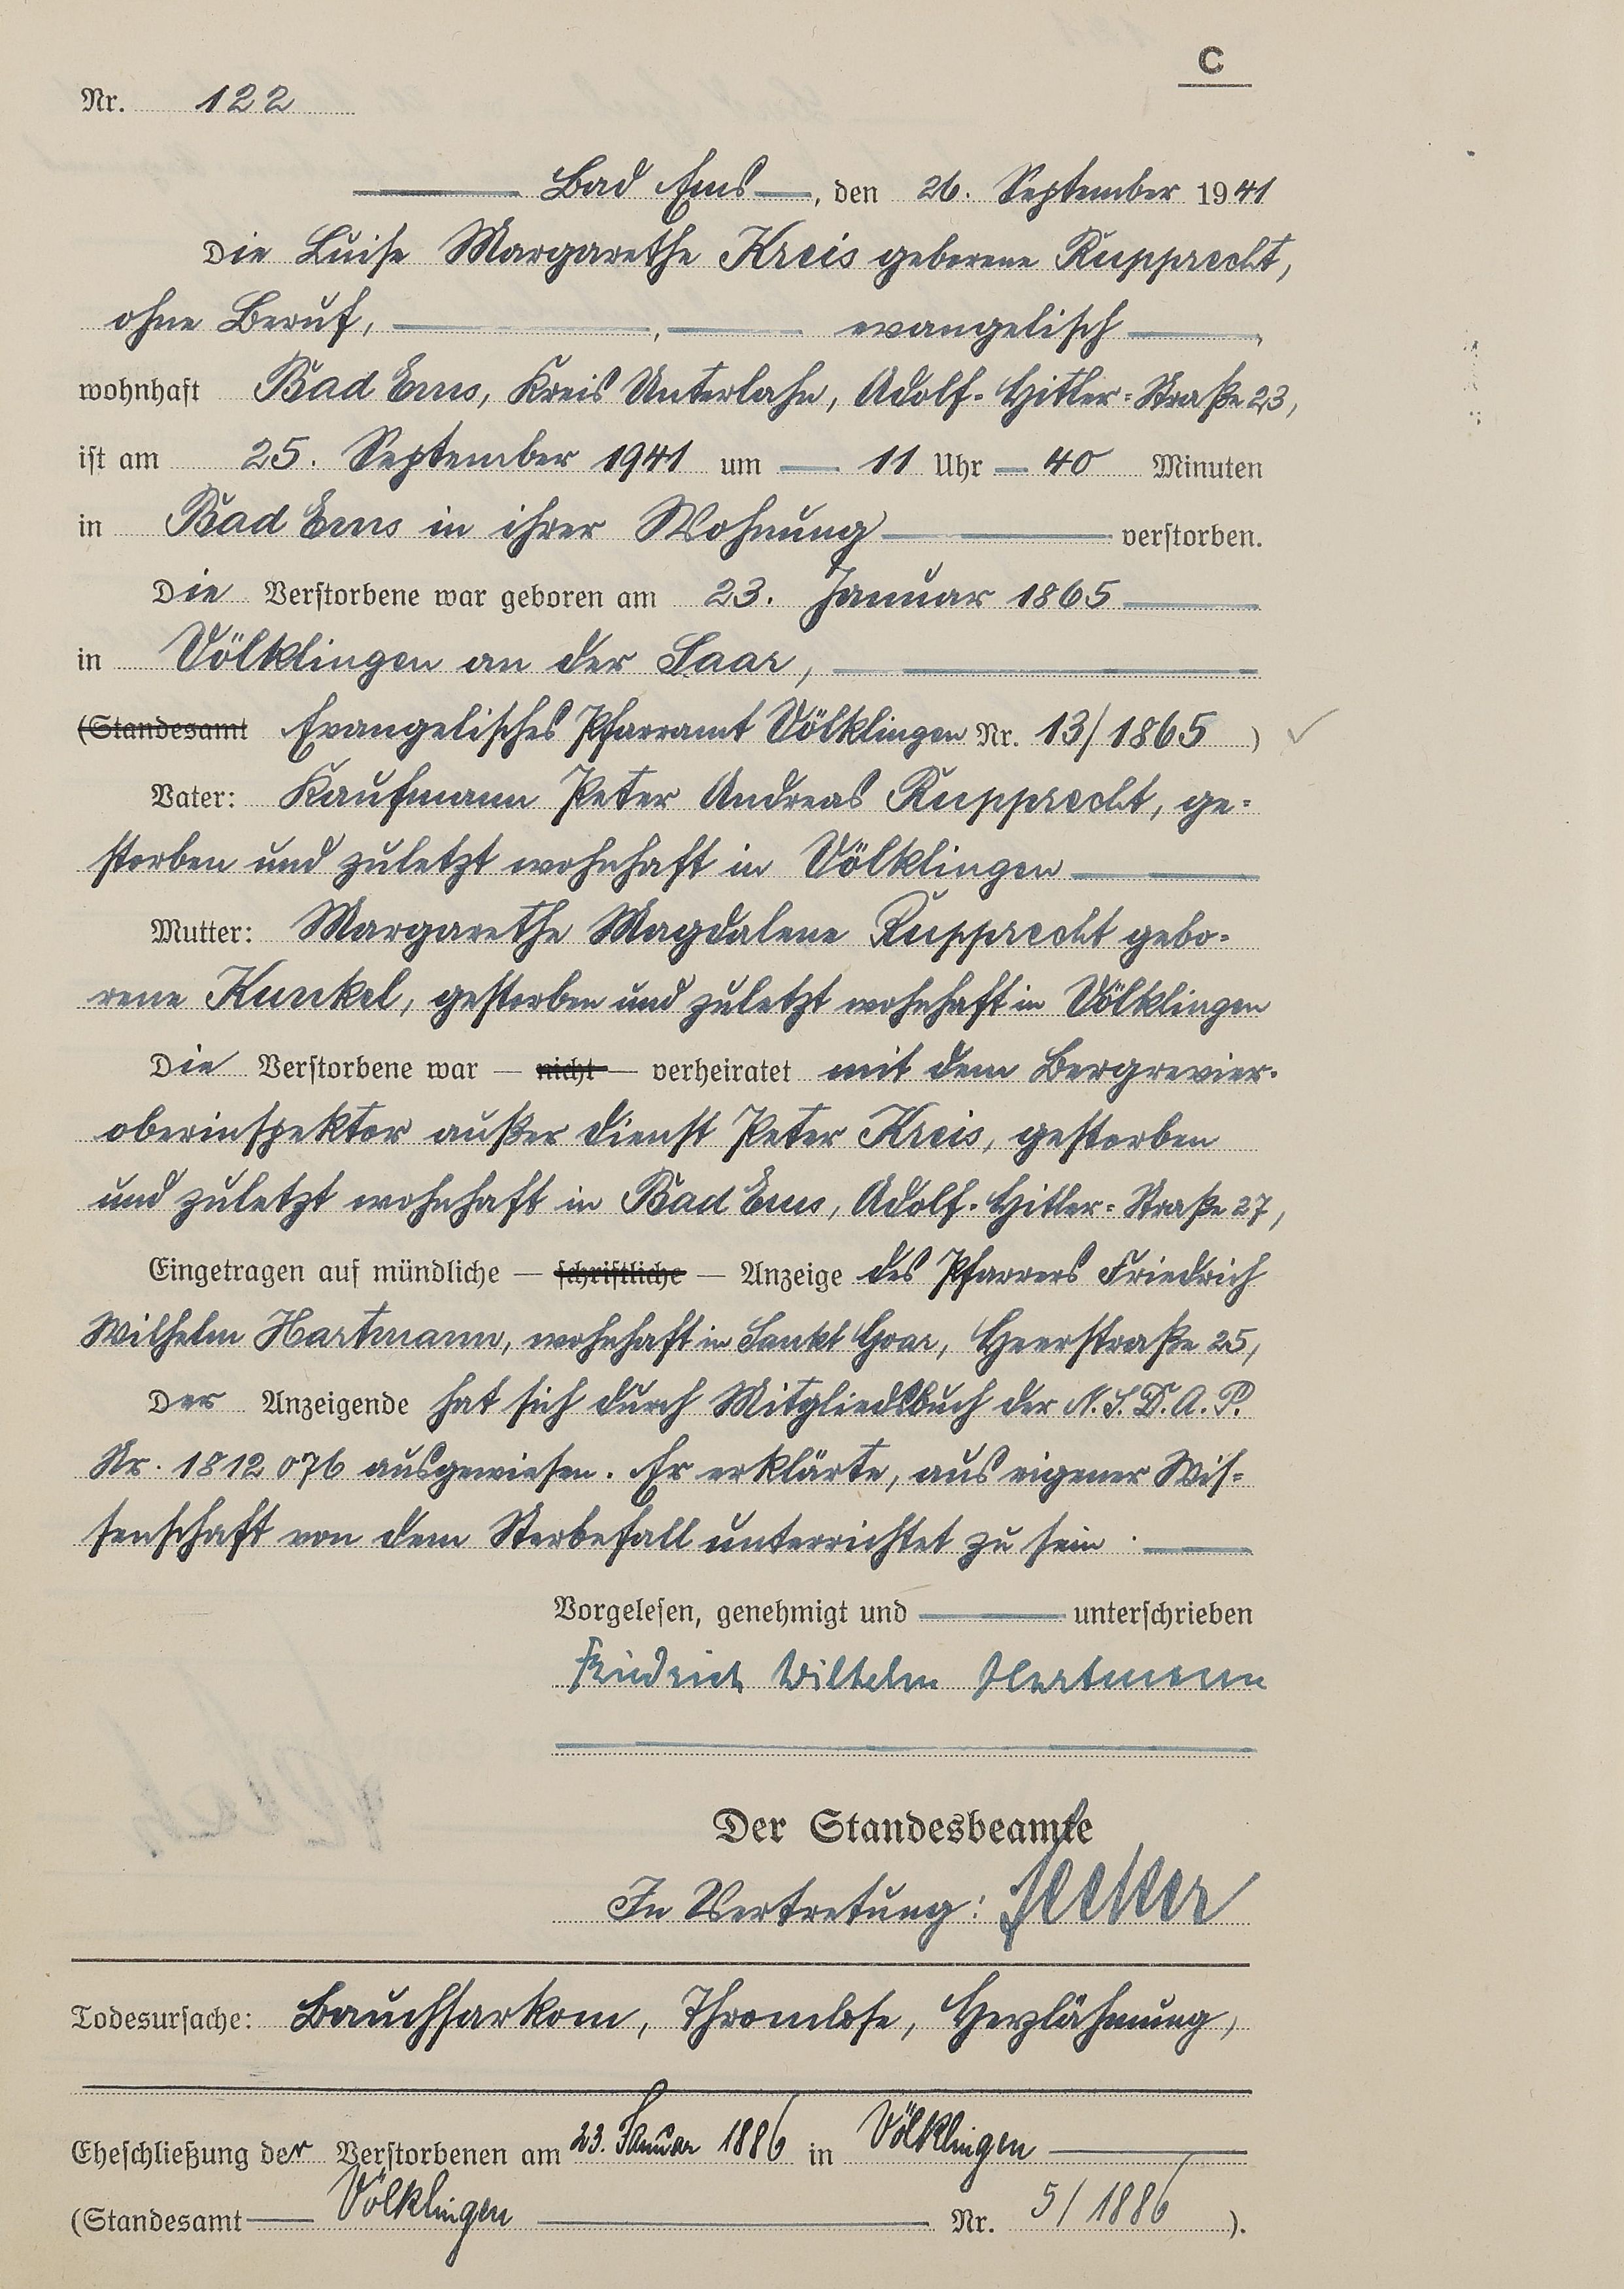 C
Nr. 122
Bad Ems, den 26. September 1941
Die Luise Margarethe Kreis geborene Rupprecht,
ohne Beruf, , evangelisch ,
wohnhaft Bad Ems, Kreis Unterlahn, Adolf-Hitler-Straße 23,
ist am 25. September 1941 um 11 Uhr 40 Minuten
in Bad Ems in ihrer Wohnung verstorben.
Die Verstorbene war geboren am 23. Januar 1865
in Völklingen an der Saar,
(Standesamt Evangelisches Pfarramt Völklingen Nr. 13/1865 )
Vater: Kaufmann Peter Andreas Rupprecht, ge-
storben und zuletzt wohnhaft in Völklingen
Mutter: Margarethe Magdalene Rupprecht gebo-
rene Kunkel, gestorben und zuletzt wohnhaft in Völklingen
Die Verstorbene war — nicht — verheiratet mit dem Bergrevier-
oberinspektor außer Dienst Peter Kreis, gestorben
und zuletzt wohnhaft in Bad Ems, Adolf-Hitler-Straße 27,
Eingetragen auf mündliche — schriftliche — Anzeige des Pfarrers Friedrich
Wilhelm Hartmann, wohnhaft in Sankt Goar, Heerstraße 25,
Der Anzeigende hat sich durch Mitgliedsbuch der N.S.D.A.P.
Nr. 1812076 ausgewiesen. Er erklärte, aus eigener Wis-
senschaft von dem Sterbefall unterrichtet zu sein.
Vorgelesen, genehmigt und unterschrieben
Friedrich Wilhelm Hartmann
Der Standesbeamte
In Vertretung:
Todesursache: Bauchsarkom, Thrombose, Herzlähmung,
Eheschließung der Verstorbenen am 23. Januar 1886 in Völklingen
(Standesamt Völklingen Nr. 5/1886 ).